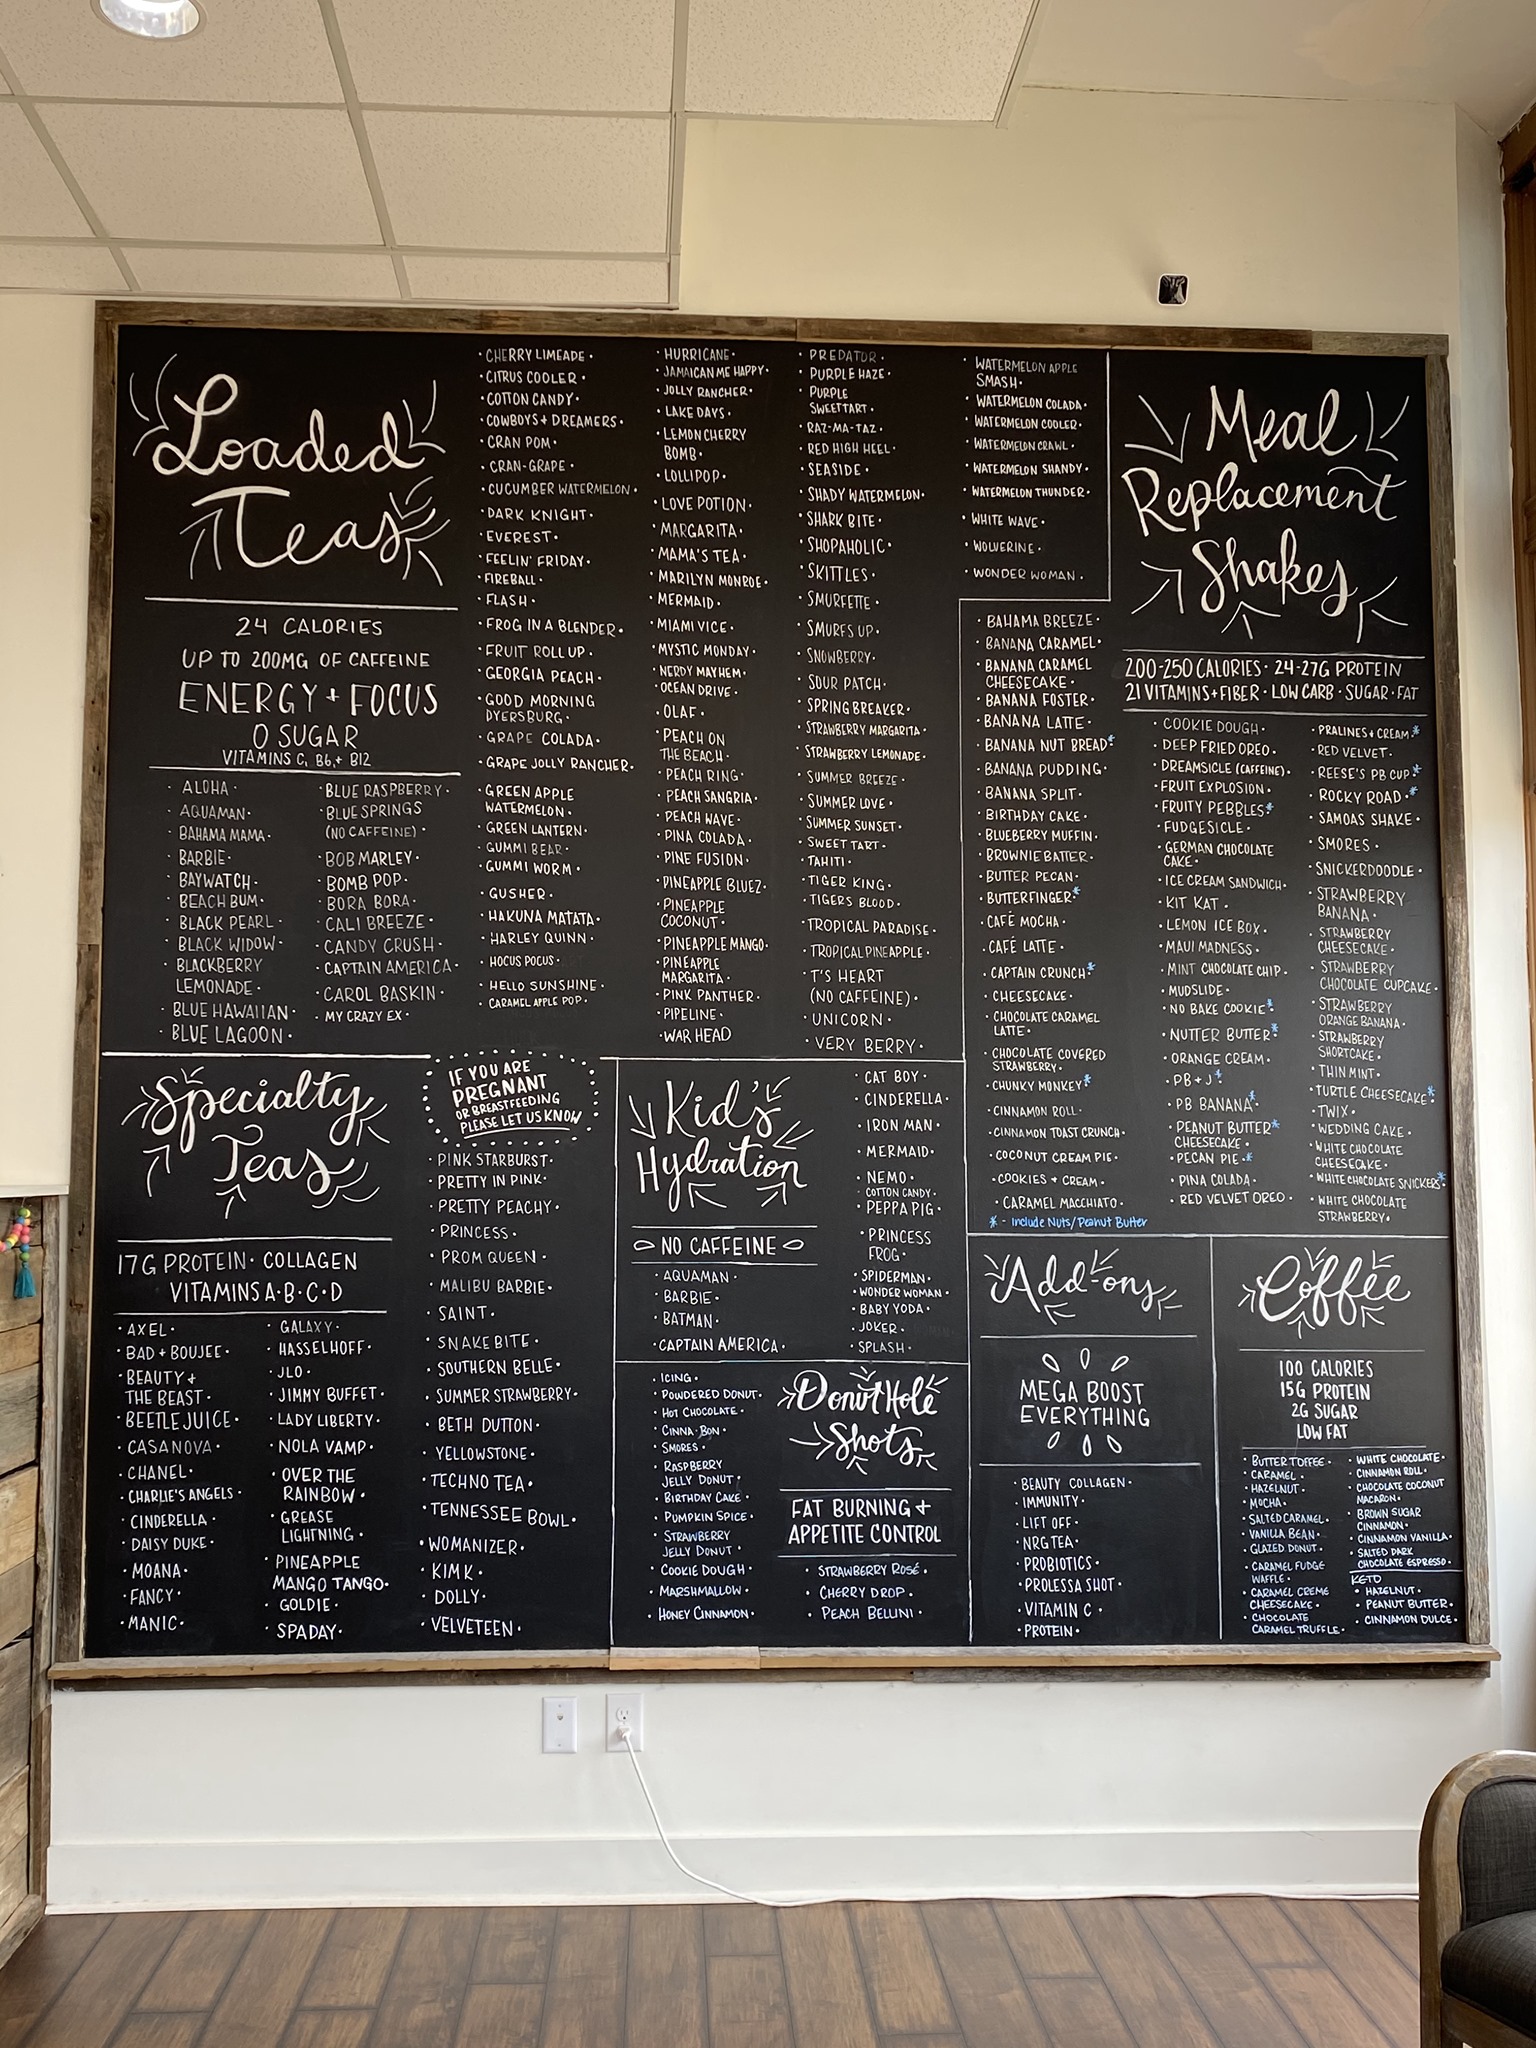 Loaded
Teas
24 CALORIES
UP TO 200MG OF CAFFEINE
ENERGY + FOCUS
0 SUGAR
VITAMINS C, B6, + B12
· ALOHA ·
· AQUAMAN ·
· BAHAMA MAMA ·
· BARBIE ·
· BAYWATCH ·
· BEACH BUM ·
· BLACK PEARL ·
· BLACK WIDOW ·
· BLACKBERRY
LEMONADE ·
· BLUE HAWAIIAN ·
· BLUE LAGOON ·
· BLUE RASPBERRY ·
· BLUE SPRINGS
(NO CAFFEINE) ·
· BOB MARLEY ·
· BOMB POP ·
· BORA BORA ·
· CALI BREEZE ·
· CANDY CRUSH ·
· CAPTAIN AMERICA ·
· CAROL BASKIN ·
· MY CRAZY EX ·
· CHERRY LIMEADE ·
· CITRUS COOLER ·
· COTTON CANDY ·
· COWBOYS + DREAMERS ·
· CRAN POM ·
· CRAN-GRAPE ·
· CUCUMBER WATERMELON ·
· DARK KNIGHT ·
· EVEREST ·
· FEELIN' FRIDAY ·
· FIREBALL ·
· FLASH ·
· FROG IN A BLENDER ·
· FRUIT ROLL UP ·
· GEORGIA PEACH ·
· GOOD MORNING
DYERSBURG ·
· GRAPE COLADA ·
· GRAPE JOLLY RANCHER ·
· GREEN APPLE
WATERMELON ·
· GREEN LANTERN ·
· GUMMI BEAR ·
· GUMMI WORM ·
· GUSHER ·
· HAKUNA MATATA ·
· HARLEY QUINN ·
· HOCUS POCUS ·
· HELLO SUNSHINE ·
· CARAMEL APPLE POP ·
· HURRICANE ·
· JAMAICAN ME HAPPY ·
· JOLLY RANCHER ·
· LAKE DAYS ·
· LEMON CHERRY
BOMB ·
· LOLLIPOP ·
· LOVE POTION ·
· MARGARITA ·
· MAMA'S TEA ·
· MARILYN MONROE ·
· MERMAID ·
· MIAMI VICE ·
· MYSTIC MONDAY ·
· NERDY MAYHEM ·
· OCEAN DRIVE ·
· OLAF ·
· PEACH ON
THE BEACH ·
· PEACH RING ·
· PEACH SANGRIA ·
· PEACH WAVE ·
· PINA COLADA ·
· PINE FUSION ·
· PINEAPPLE BLUEZ ·
· PINEAPPLE
COCONUT ·
· PINEAPPLE MANGO ·
· PINEAPPLE
MARGARITA ·
· PINK PANTHER ·
· PIPELINE ·
· WAR HEAD
· PREDATOR ·
· PURPLE HAZE ·
· PURPLE
SWEETTART ·
· RAZ-MA-TAZ ·
· RED HIGH HEEL ·
· SEASIDE ·
· SHADY WATERMELON ·
· SHARK BITE ·
· SHOPAHOLIC ·
· SKITTLES ·
· SMURFETTE ·
· SMURFS UP ·
· SNOWBERRY ·
· SOUR PATCH ·
· SPRING BREAKER ·
· STRAWBERRY MARGARITA ·
· STRAWBERRY LEMONADE ·
· SUMMER BREEZE ·
· SUMMER LOVE ·
· SUMMER SUNSET ·
· SWEET TART ·
· TAHITI ·
· TIGER KING ·
· TIGERS BLOOD ·
· TROPICAL PARADISE ·
· TROPICAL PINEAPPLE ·
· T'S HEART
(NO CAFFEINE) ·
· UNICORN ·
· VERY BERRY ·
· WATERMELON APPLE
SMASH ·
· WATERMELON COLADA ·
· WATERMELON COOLER ·
· WATERMELON CRAWL ·
· WATERMELON SHANDY ·
· WATERMELON THUNDER ·
· WHITE WAVE ·
· WOLVERINE ·
· WONDER WOMAN ·
Meal
Replacement
Shakes
200-250 CALORIES · 24-27G PROTEIN
21 VITAMINS + FIBER · LOW CARB · SUGAR · FAT
· BAHAMA BREEZE ·
· BANANA CARAMEL ·
· BANANA CARAMEL
CHEESECAKE ·
· BANANA FOSTER ·
· BANANA LATTE ·
· BANANA NUT BREAD *
· BANANA PUDDING ·
· BANANA SPLIT ·
· BIRTHDAY CAKE ·
· BLUEBERRY MUFFIN ·
· BROWNIE BATTER ·
· BUTTER PECAN ·
· BUTTERFINGER *
· CAFÉ MOCHA ·
· CAFÉ LATTE ·
· CAPTAIN CRUNCH *
· CHEESECAKE ·
· CHOCOLATE CARAMEL
LATTE ·
· CHOCOLATE COVERED
STRAWBERRY ·
· CHUNKY MONKEY *
· CINNAMON ROLL ·
· CINNAMON TOAST CRUNCH ·
· COCONUT CREAM PIE ·
· COOKIES + CREAM ·
· CARAMEL MACCHIATO ·
* - Include Nuts/Peanut Butter
· COOKIE DOUGH ·
· DEEP FRIED OREO ·
· DREAMSICLE (CAFFEINE) ·
· FRUIT EXPLOSION ·
· FRUITY PEBBLES *
· FUDGESICLE ·
· GERMAN CHOCOLATE
CAKE ·
· ICE CREAM SANDWICH ·
· KIT KAT ·
· LEMON ICE BOX ·
· MAUI MADNESS ·
· MINT CHOCOLATE CHIP ·
· MUDSLIDE ·
· NO BAKE COOKIE *
· NUTTER BUTTER *
· ORANGE CREAM ·
· PB + J *
· PB BANANA *
· PEANUT BUTTER *
CHEESECAKE ·
· PECAN PIE *
· PINA COLADA ·
· RED VELVET OREO ·
· PRALINES + CREAM *
· RED VELVET ·
· REESE'S PB CUP *
· ROCKY ROAD *
· SAMOAS SHAKE ·
· SMORES ·
· SNICKERDOODLE ·
· STRAWBERRY
BANANA ·
· STRAWBERRY
CHEESECAKE ·
· STRAWBERRY
CHOCOLATE CUPCAKE ·
· STRAWBERRY
ORANGE BANANA ·
· STRAWBERRY
SHORTCAKE ·
· THIN MINT ·
· TURTLE CHEESECAKE *
· TWIX ·
· WEDDING CAKE ·
· WHITE CHOCOLATE
CHEESECAKE ·
· WHITE CHOCOLATE SNICKERS *
· WHITE CHOCOLATE
STRAWBERRY ·
Specialty
Teas
17G PROTEIN · COLLAGEN
VITAMINS A · B · C · D
IF YOU ARE
PREGNANT
OR BREASTFEEDING
PLEASE LET US KNOW
· AXEL ·
· BAD + BOUJEE ·
· BEAUTY +
THE BEAST ·
· BEETLEJUICE ·
· CASANOVA ·
· CHANEL ·
· CHARLIE'S ANGELS ·
· CINDERELLA ·
· DAISY DUKE ·
· MOANA ·
· FANCY ·
· MANIC ·
· GALAXY ·
· HASSELHOFF ·
· JLO ·
· JIMMY BUFFET ·
· LADY LIBERTY ·
· NOLA VAMP ·
· OVER THE
RAINBOW ·
· GREASE
LIGHTNING ·
· PINEAPPLE
MANGO TANGO ·
· GOLDIE ·
· SPADAY ·
· PINK STARBURST ·
· PRETTY IN PINK ·
· PRETTY PEACHY ·
· PRINCESS ·
· PROM QUEEN ·
· MALIBU BARBIE ·
· SAINT ·
· SNAKE BITE ·
· SOUTHERN BELLE ·
· SUMMER STRAWBERRY ·
· BETH DUTTON ·
· YELLOWSTONE ·
· TECHNO TEA ·
· TENNESSEE BOWL ·
· WOMANIZER ·
· KIM K ·
· DOLLY ·
· VELVETEEN ·
Kid's
Hydration
NO CAFFEINE
· AQUAMAN ·
· BARBIE ·
· BATMAN ·
· CAPTAIN AMERICA ·
· CAT BOY ·
· CINDERELLA ·
· IRON MAN ·
· MERMAID ·
· NEMO ·
· COTTON CANDY ·
· PEPPA PIG ·
· PRINCESS
FROG ·
· SPIDERMAN ·
· WONDER WOMAN ·
· BABY YODA ·
· JOKER ·
· SPLASH ·
Donut Hole
Shots
FAT BURNING +
APPETITE CONTROL
· ICING ·
· POWDERED DONUT ·
· HOT CHOCOLATE ·
· CINNA-BON ·
· SMORES ·
· RASPBERRY
JELLY DONUT ·
· BIRTHDAY CAKE ·
· PUMPKIN SPICE ·
· STRAWBERRY
JELLY DONUT ·
· COOKIE DOUGH ·
· MARSHMALLOW ·
· HONEY CINNAMON ·
· STRAWBERRY ROSÉ ·
· CHERRY DROP ·
· PEACH BELLINI ·
Add-ons
MEGA BOOST
EVERYTHING
· BEAUTY COLLAGEN ·
· IMMUNITY ·
· LIFT OFF ·
· NRG TEA ·
· PROBIOTICS ·
· PROLESSA SHOT ·
· VITAMIN C ·
· PROTEIN ·
Coffee
100 CALORIES
15G PROTEIN
2G SUGAR
LOW FAT
· BUTTER TOFFEE ·
· CARAMEL ·
· HAZELNUT ·
· MOCHA ·
· SALTED CARAMEL ·
· VANILLA BEAN ·
· GLAZED DONUT ·
· CARAMEL FUDGE
WAFFLE ·
· CARAMEL CREME
CHEESECAKE ·
· CHOCOLATE
CARAMEL TRUFFLE ·
· WHITE CHOCOLATE ·
· CINNAMON ROLL ·
· CHOCOLATE COCONUT
MACARON ·
· BROWN SUGAR
CINNAMON ·
· CINNAMON VANILLA ·
· SALTED DARK
CHOCOLATE ESPRESSO ·
KETO
· HAZELNUT ·
· PEANUT BUTTER ·
· CINNAMON DULCE ·